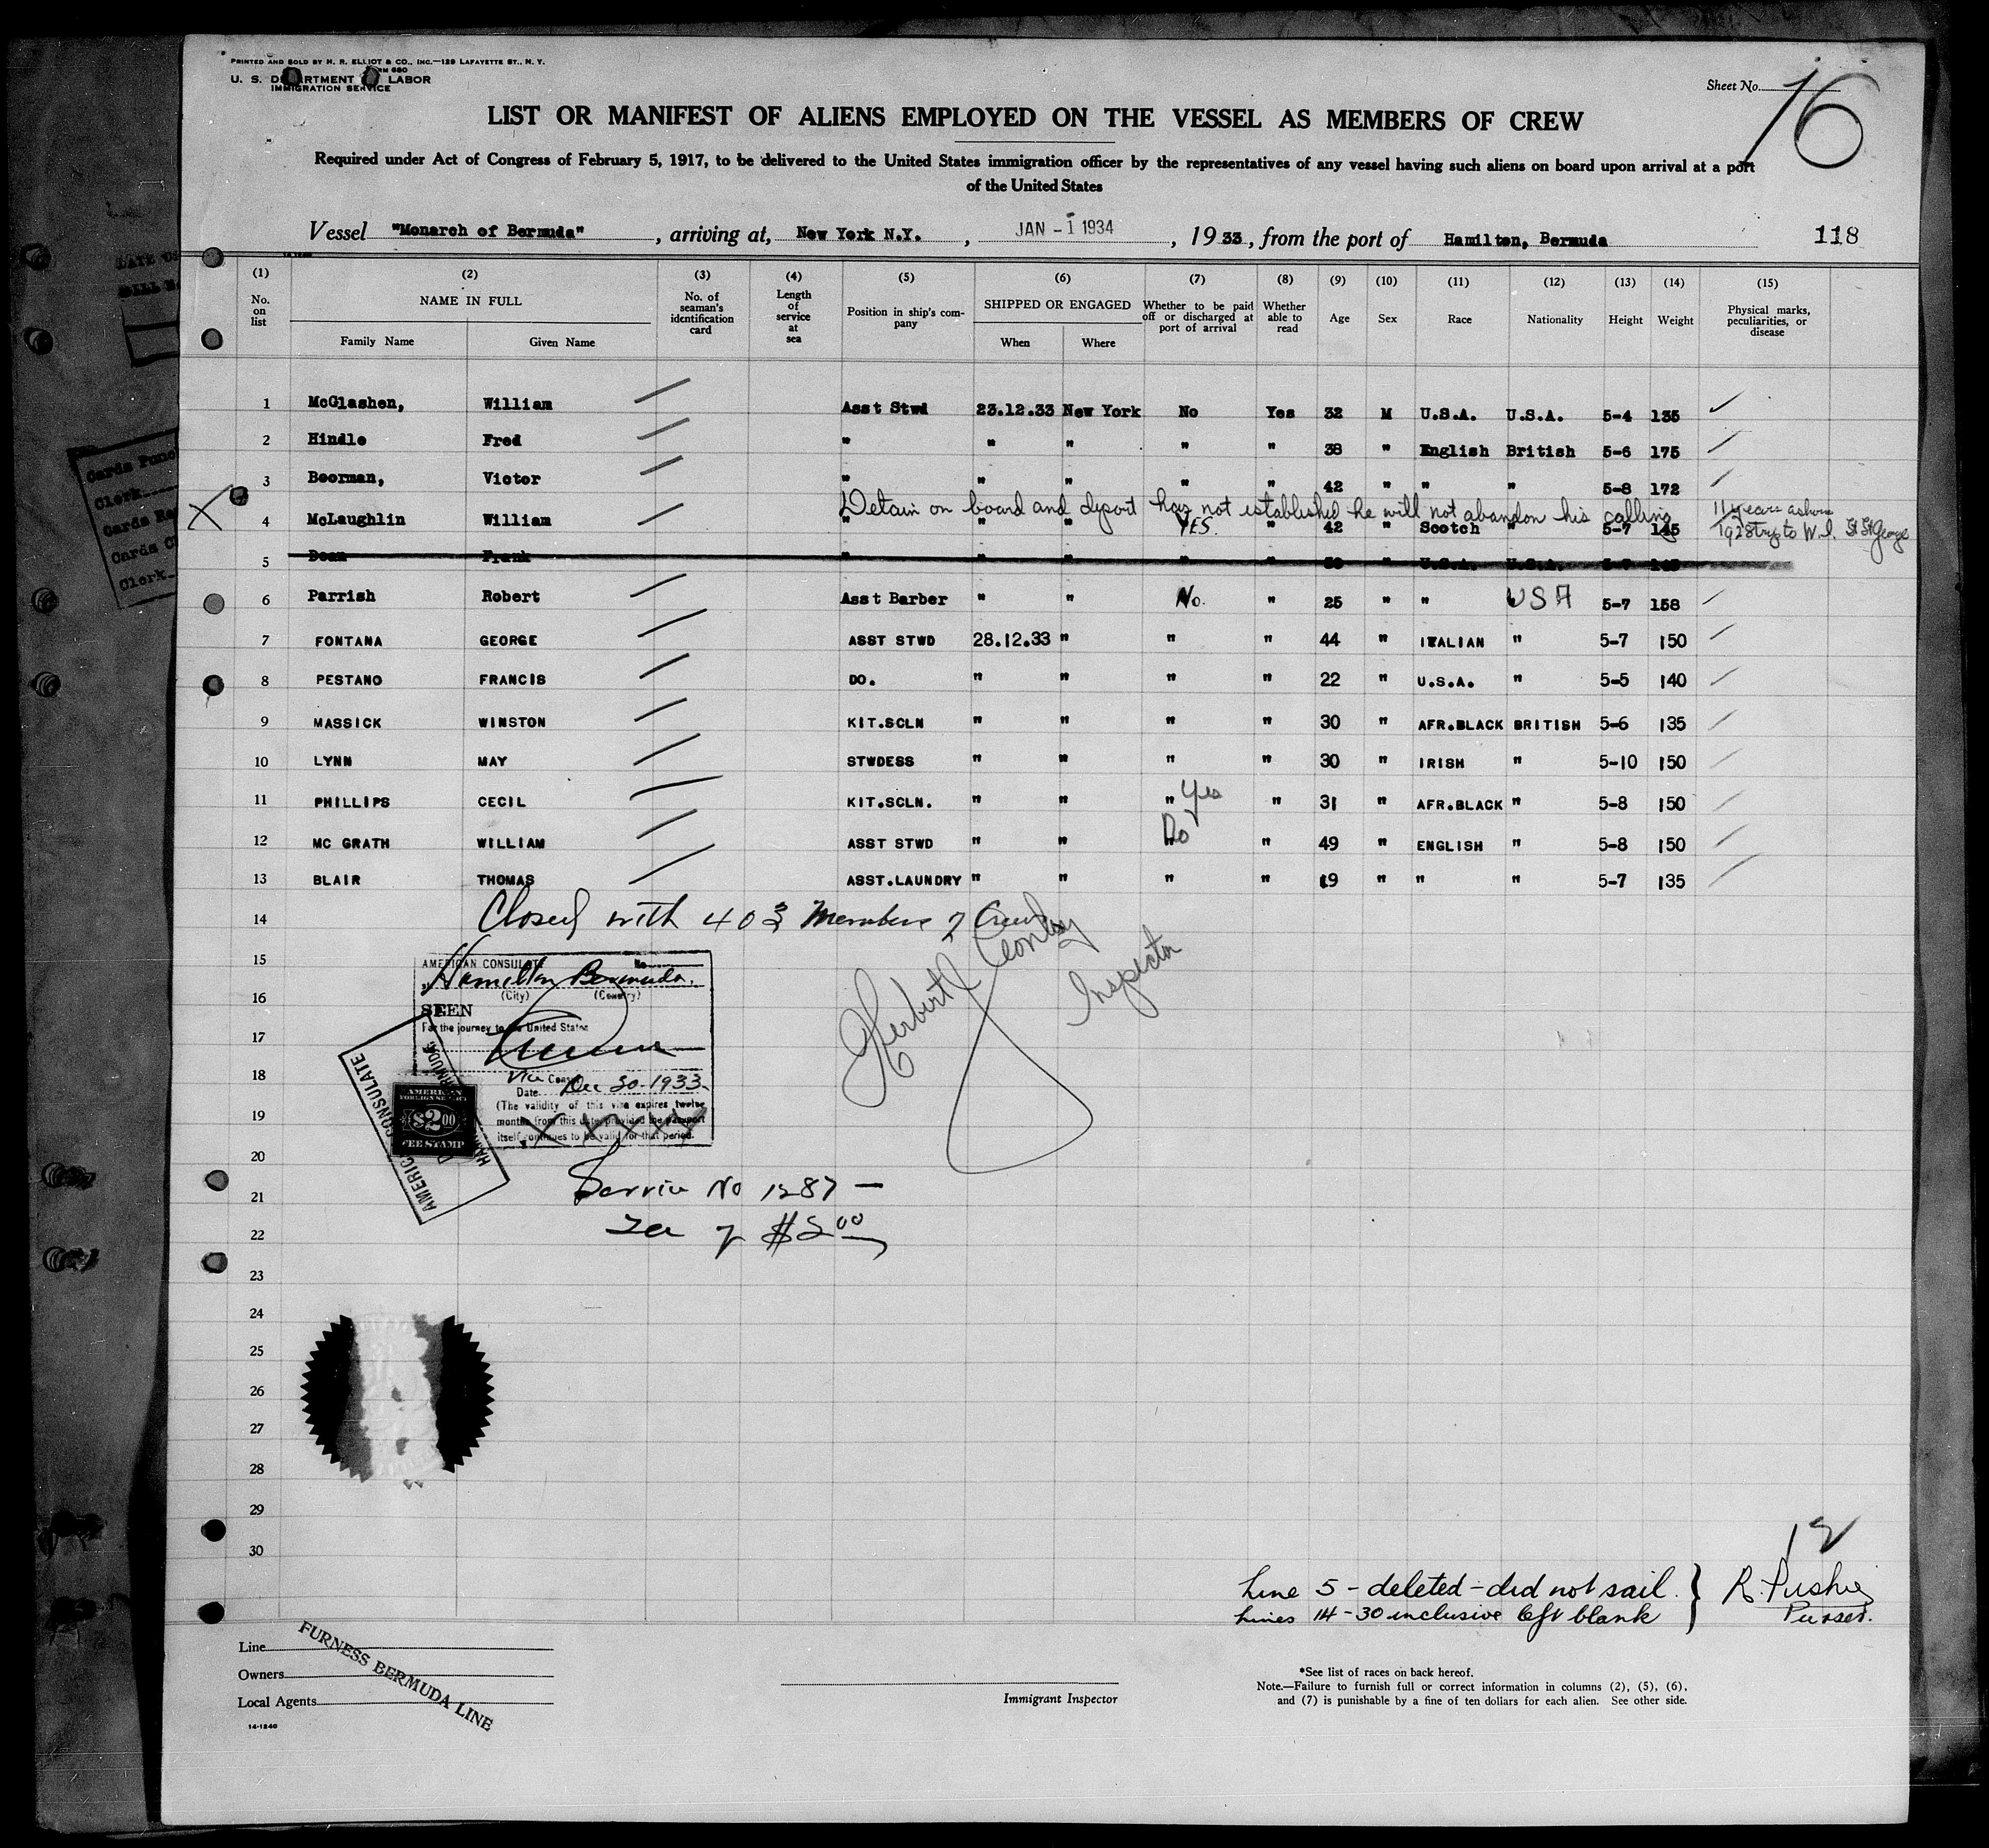 PRINTED AND SOLD BY H. R. ELLIOT & CO., INC.—129 LAFAYETTE ST., N. Y.
U. S. DEPARTMENT OF LABOR
IMMIGRATION SERVICE
Sheet No. 16
LIST OR MANIFEST OF ALIENS EMPLOYED ON THE VESSEL AS MEMBERS OF CREW
Required under Act of Congress of February 5, 1917, to be delivered to the United States immigration officer by the representatives of any vessel having such aliens on board upon arrival at a port
of the United States
Vessel "Monarch of Bermuda", arriving at, New York N.Y., JAN - 1 1934, 1933, from the port of Hamilton, Bermuda 118
(1) (2) (3) (4) (5) (6) (7) (8) (9) (10) (11) (12) (13) (14) (15)
No. on list NAME IN FULL Family Name Given Name No. of seaman's identification card Length of service at sea Position in ship's company SHIPPED OR ENGAGED When Where Whether to be paid off or discharged at port of arrival Whether able to read Age Sex Race Nationality Height Weight Physical marks, peculiarities, or disease
1 McGlashen, William Asst Stwd 23.12.33 New York No Yes 32 M U.S.A. U.S.A. 5-4 135
2 Hindle Fred " " " " " 38 " English British 5-6 175
3 Boorman, Victor " " " " " 42 " " " 5-8 172
Detain on board and deport has not established he will not abandon his calling
4 McLaughlin William " " " YES. " 42 " Scotch " 5-7 145 11 years ashore
1928 trip to W.I. St George
5 Dean Frank " " " " " 30 " U.S.A. U.S.A. 5-7
6 Parrish Robert Asst Barber " " No. " 25 " " USA 5-7 158
7 FONTANA GEORGE ASST STWD 28.12.33 " " " 44 " ITALIAN " 5-7 150
8 PESTANO FRANCIS DO. " " " " 22 " U.S.A. " 5-5 140
9 MASSICK WINSTON KIT.SCLN " " " " 30 " AFR.BLACK BRITISH 5-6 135
10 LYNN MAY STWDESS " " " " 30 " IRISH " 5-10 150
11 PHILLIPS CECIL KIT.SCLN. " " " Yes " 31 " AFR.BLACK " 5-8 150
12 MC GRATH WILLIAM ASST STWD " " No " 49 " ENGLISH " 5-8 150
13 BLAIR THOMAS ASST.LAUNDRY " " " " 19 " " " 5-7 135
14 Closed with 403 Members of Crew
15
16
17
18
19
20
21
22
23
24
25
26
27
28
29
30
AMERICAN CONSULATE No.
Hamilton Bermuda.
(City) (Country)
SEEN
For the journey to the United States
Vice Consul
Date Dec 30-1933
(The validity of this visa expires twelve
months from this date, provided the passport
itself continues to be valid for that period.
AMERICAN CONSULATE
AMERICAN
FOREIGN SERVICE
$2.00
FEE STAMP
Herbert
Inspector
Service No 1287 —
Fee of $2.00
12
Line 5 - deleted - did not sail.
Lines 14 - 30 inclusive left blank
Purser.
Line
Owners
Local Agents
FURNESS BERMUDA LINE
14-1240
Immigrant Inspector
*See list of races on back hereof.
Note.—Failure to furnish full or correct information in columns (2), (5), (6),
and (7) is punishable by a fine of ten dollars for each alien. See other side.
Cards Punc
Clerk
Cards Re
Cards C
Clerk